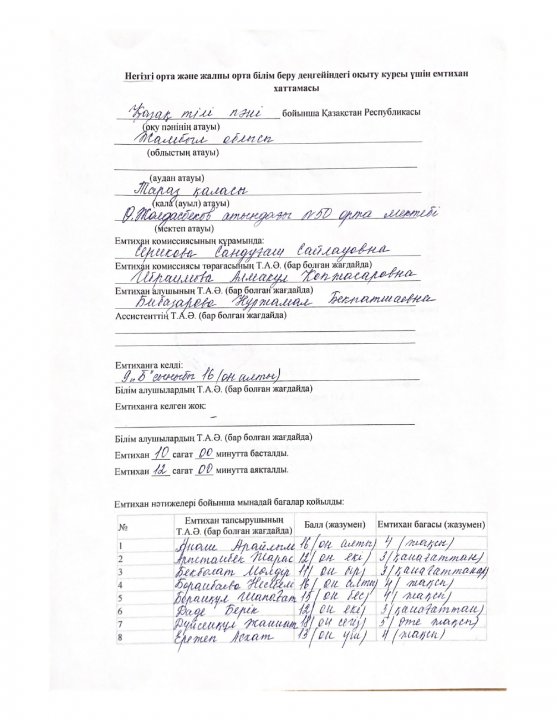 Негізгі орта және жалпы орта білім беру деңгейіндегі оқыту курсы үшін емтихан
хаттамасы
Қазақ тілі пәні бойынша Қазақстан Республикасы
(оқу пәнінің атауы)
Жамбыл облысы
(облыстың атауы)
(аудан атауы)
Тараз қаласы
(қала (ауыл) атауы)
Ө.Жолдасбеков атындағы №50 орта мектебі
(мектеп атауы)
Емтихан комиссиясының құрамында:
Серикова Сандуғаш Сайлауовна
Емтихан комиссиясы төрағасының Т.А.Ә. (бар болған жағдайда)
Ибраимова Алмакул Коптасаровна
Емтихан алушының Т.А.Ә. (бар болған жағдайда)
Бибазарова Нуржамал Бекпатшаевна
Ассистенттің Т.А.Ә. (бар болған жағдайда)
Емтиханға келді:
9 „Б" сыныбы 16 (он алты)
Білім алушылардың Т.А.Ә. (бар болған жағдайда)
Емтиханға келген жоқ:
–
Білім алушылардың Т.А.Ә. (бар болған жағдайда)
Емтихан 10 сағат 00 минутта басталды.
Емтихан 12 сағат 00 минутта аяқталды.
Емтихан нәтижелері бойынша мынадай бағалар қойылды:
№ Емтихан тапсырушының Т.А.Ә. (бар болған жағдайда) Балл (жазумен) Емтихан бағасы (жазумен)
1 Арайлым 16 (он алты) 4 (жақсы)
2 Тарас 12 (он екі) 3 (қанағаттан)
3 Бекболат Мөлдір 11 (он бір) 3 (қанағаттанар)
4 16 (он алты) 4 (жақсы)
5 15 (он бес) 4 (жақсы)
6 Даде Берік 12 (он екі) 3 (қанағаттан)
7 18 (он сегіз) 5 (өте жақсы)
8 Еретеп Асхат 13 (он үш) 4 (жақсы)